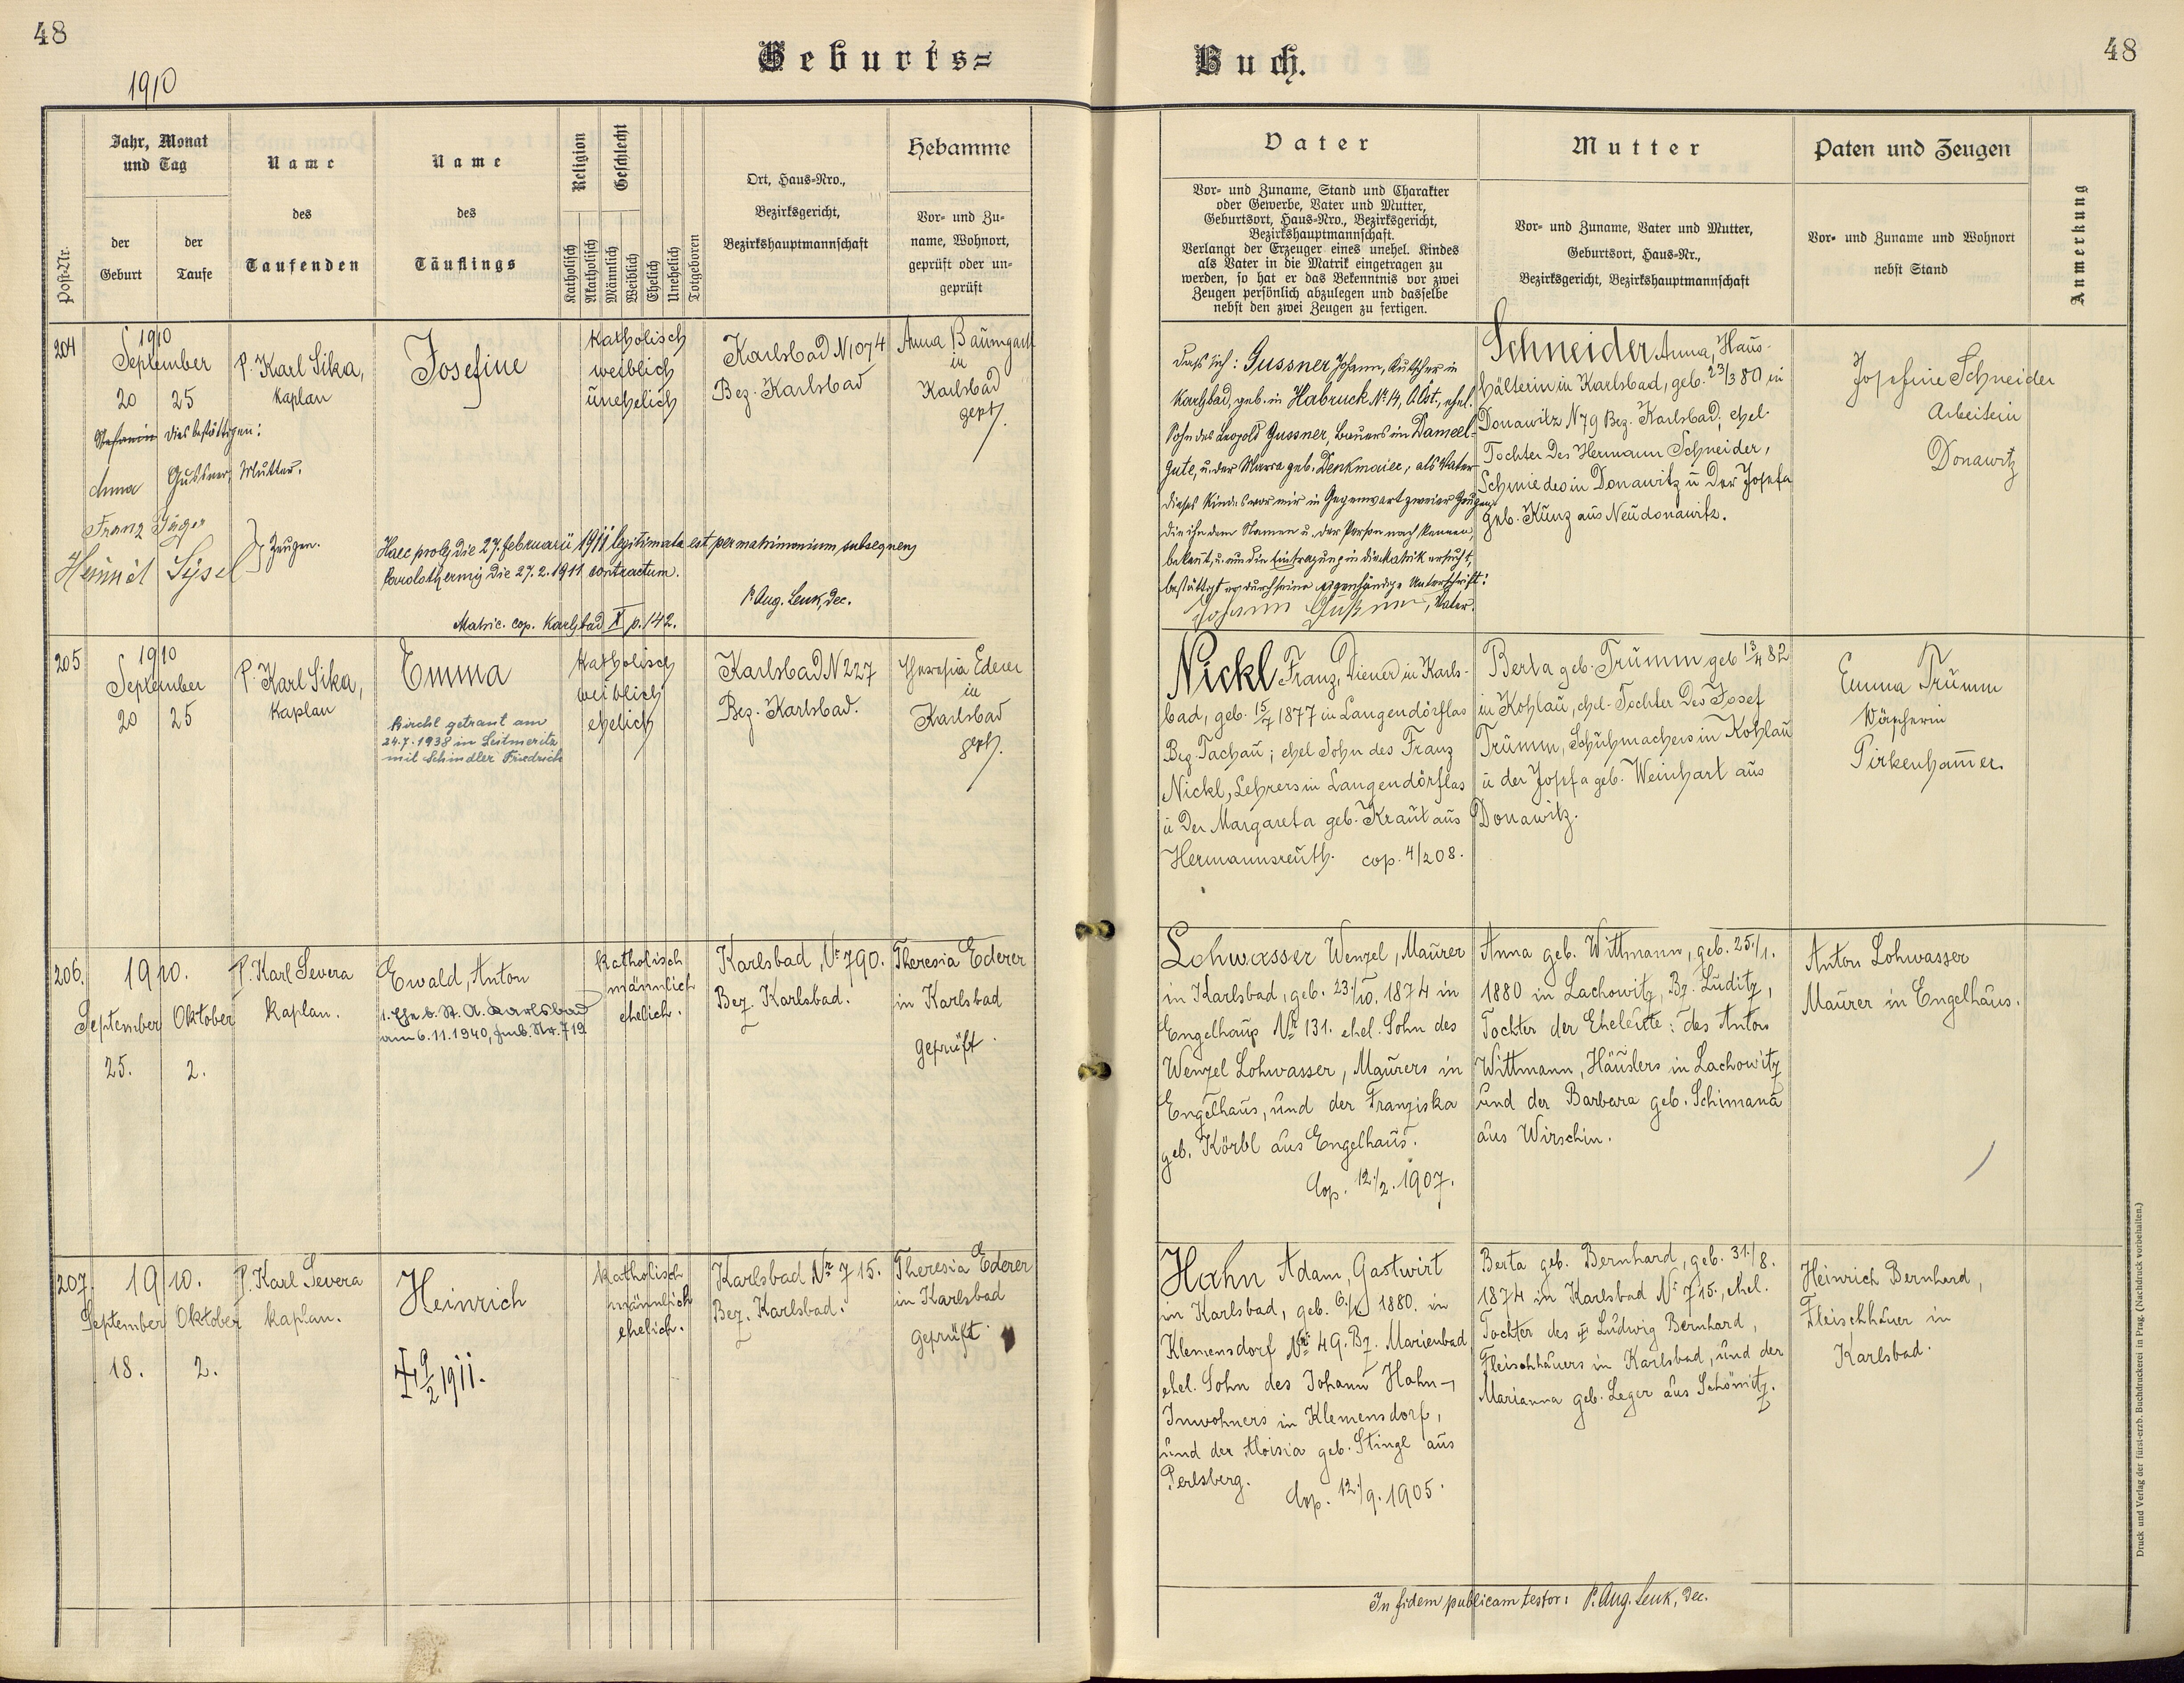 48
1910
Geburts=
Buch.
48
Post-Nr.
Jahr, Monat
und Tag
der
Geburt
der
Taufe
Name
des
Taufenden
Name
des
Täuflings
Religion
Geschlecht
Katholisch
Akatholisch
Männlich
Weiblich
Ehelich
Unehelich
Totgeboren
Ort, Haus-Nro.,
Bezirksgericht,
Bezirkshauptmannschaft
Hebamme
Vor- und Zu-
name, Wohnort,
geprüft oder un-
geprüft
Vater
Vor- und Zuname, Stand und Charakter
oder Gewerbe, Vater und Mutter,
Geburtsort, Haus-Nro., Bezirksgericht,
Bezirkshauptmannschaft.
Verlangt der Erzeuger eines unehel. Kindes
als Vater in die Matrik eingetragen zu
werden, so hat er das Bekenntnis vor zwei
Zeugen persönlich abzulegen und dasselbe
nebst den zwei Zeugen zu fertigen.
Mutter
Vor- und Zuname, Vater und Mutter,
Geburtsort, Haus-Nr.,
Bezirksgericht, Bezirkshauptmannschaft
Paten und Zeugen
Vor- und Zuname und Wohnort
nebst Stand
Anmerkung
204
1910
September
20 25
P. Karl Sika,
Kaplan
Josefine
katholisch
weiblich
unehelich
Karlsbad N 1074
Bez. Karlsbad
Anna Baumgartl
in
Karlsbad
gept.
dies bestättigen:
Anna Gussner, Mutter.
Franz Jäger
Zeugen.
Haec proles die 27. februarii 1911 legitimata est per matrimonium subsequens
Carolothermis die 27.2.1911 contractum.
P. Aug. Lenk, Dec.
Matric. cop. Karlsbad X p. 142.
Dass ich: Gussner Johann, Kutscher in
Karlsbad, geb. in Habruck Nr. 14, O.Öst., ehel.
Sohn des Leopold Gussner, Bauers im Dameel-
Gute, u. der Maria geb. Denkmaier, als Vater
dieses Kindes vor mir in Gegenwart zweier Zeugen,
die ihn dem Namen u. der Person nach kennen,
bekennt, u. um die Eintragung in die Matrik ersucht,
bestättigt er durch seine eigenhändige Unterschrift:
Johann Gußner, Vater.
Schneider Anna, Haus-
hälterin in Karlsbad, geb. 23/3 80 in
Donawitz N 79 Bez. Karlsbad; ehel.
Tochter des Hermann Schneider,
Schmiedes in Donawitz u der Josefa
geb. Kunz aus Neudonawitz.
Josefine Schneider
Arbeiterin
Donawitz
205
1910
September
20 25
P. Karl Sika,
Kaplan
Emma
Kirchl getraut am
24.7.1938 in Leitmeritz
mit Schindler Friedrich
katholisch
weiblich
ehelich
Karlsbad N 227
Bez. Karlsbad.
Theresia Ederer
in
Karlsbad
gept.
Nickl Franz, Diener in Karls-
bad, geb. 15/7 1877 in Langendörflas
Bez. Tachau; ehel Sohn des Franz
Nickl, Lehrers in Langendörflas
u der Margareta geb. Kraut aus
Hermannsreuth. cop. 4/2 08.
Berta geb. Trümm geb 13/4 82
in Kohlau, ehel. Tochter des Josef
Trümm, Schuhmachers in Kohlau
u der Josefa geb. Weinhart aus
Donawitz.
Emma Trümm
Wäscherin
Pirkenhammer.
206.
1910.
September Oktober
25. 2.
P. Karl Severa
Kaplan.
Ewald, Anton
1. Ehe b. St. A. Karlsbad
am 6.11.1940, Fmb. Nr. 719
katholisch
männlich
ehelich.
Karlsbad, Nr 790.
Bez. Karlsbad.
Theresia Ederer
in Karlsbad
geprüft.
Lohwasser Wenzel, Maurer
in Karlsbad, geb. 23./10. 1874 in
Engelhaus Nr 131. ehel. Sohn des
Wenzel Lohwasser, Maurers in
Engelhaus, und der Franziska
geb. Körbl aus Engelhaus.
Cop. 12./2. 1907.
Anna geb. Wittmann, geb. 25./1.
1880 in Lachowitz, Bz. Luditz,
Tochter der Eheleute: des Anton
Wittmann, Häuslers in Lachowitz
und der Barbara geb. Schimana
aus Wirschin.
Anton Lohwasser
Maurer in Engelhaus.
207.
1910.
September Oktober
18. 2.
P. Karl Severa
Kaplan.
Heinrich
9/2 1911.
katholisch
männlich
ehelich.
Karlsbad Nr 715.
Bez. Karlsbad.
Theresia Ederer
in Karlsbad
geprüft.
Hahn Adam, Gastwirt
in Karlsbad, geb. 6./1 1880. in
Klemensdorf Nr 49. Bz. Marienbad
ehel. Sohn des Johann Hahn,
Inwohners in Klemensdorf,
und der Aloisia geb. Stingl aus
Perlsberg.
Cop. 12./9. 1905.
Berta geb. Bernhard, geb. 31./8.
1874 in Karlsbad Nr 715., ehel.
Tochter des Ludwig Bernhard,
Fleischhauers in Karlsbad, und der
Marianna geb. Leger aus Schömitz.
Heinrich Bernhard,
Fleischhauer in
Karlsbad.
In fidem publicam testor: P. Aug. Lenk, Dec.
Druck und Verlag der fürst-erzb. Buchdruckerei in Prag. (Nachdruck vorbehalten.)